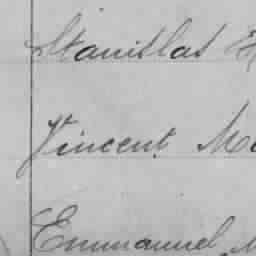 Stanislas
Vincent
Emmanuel